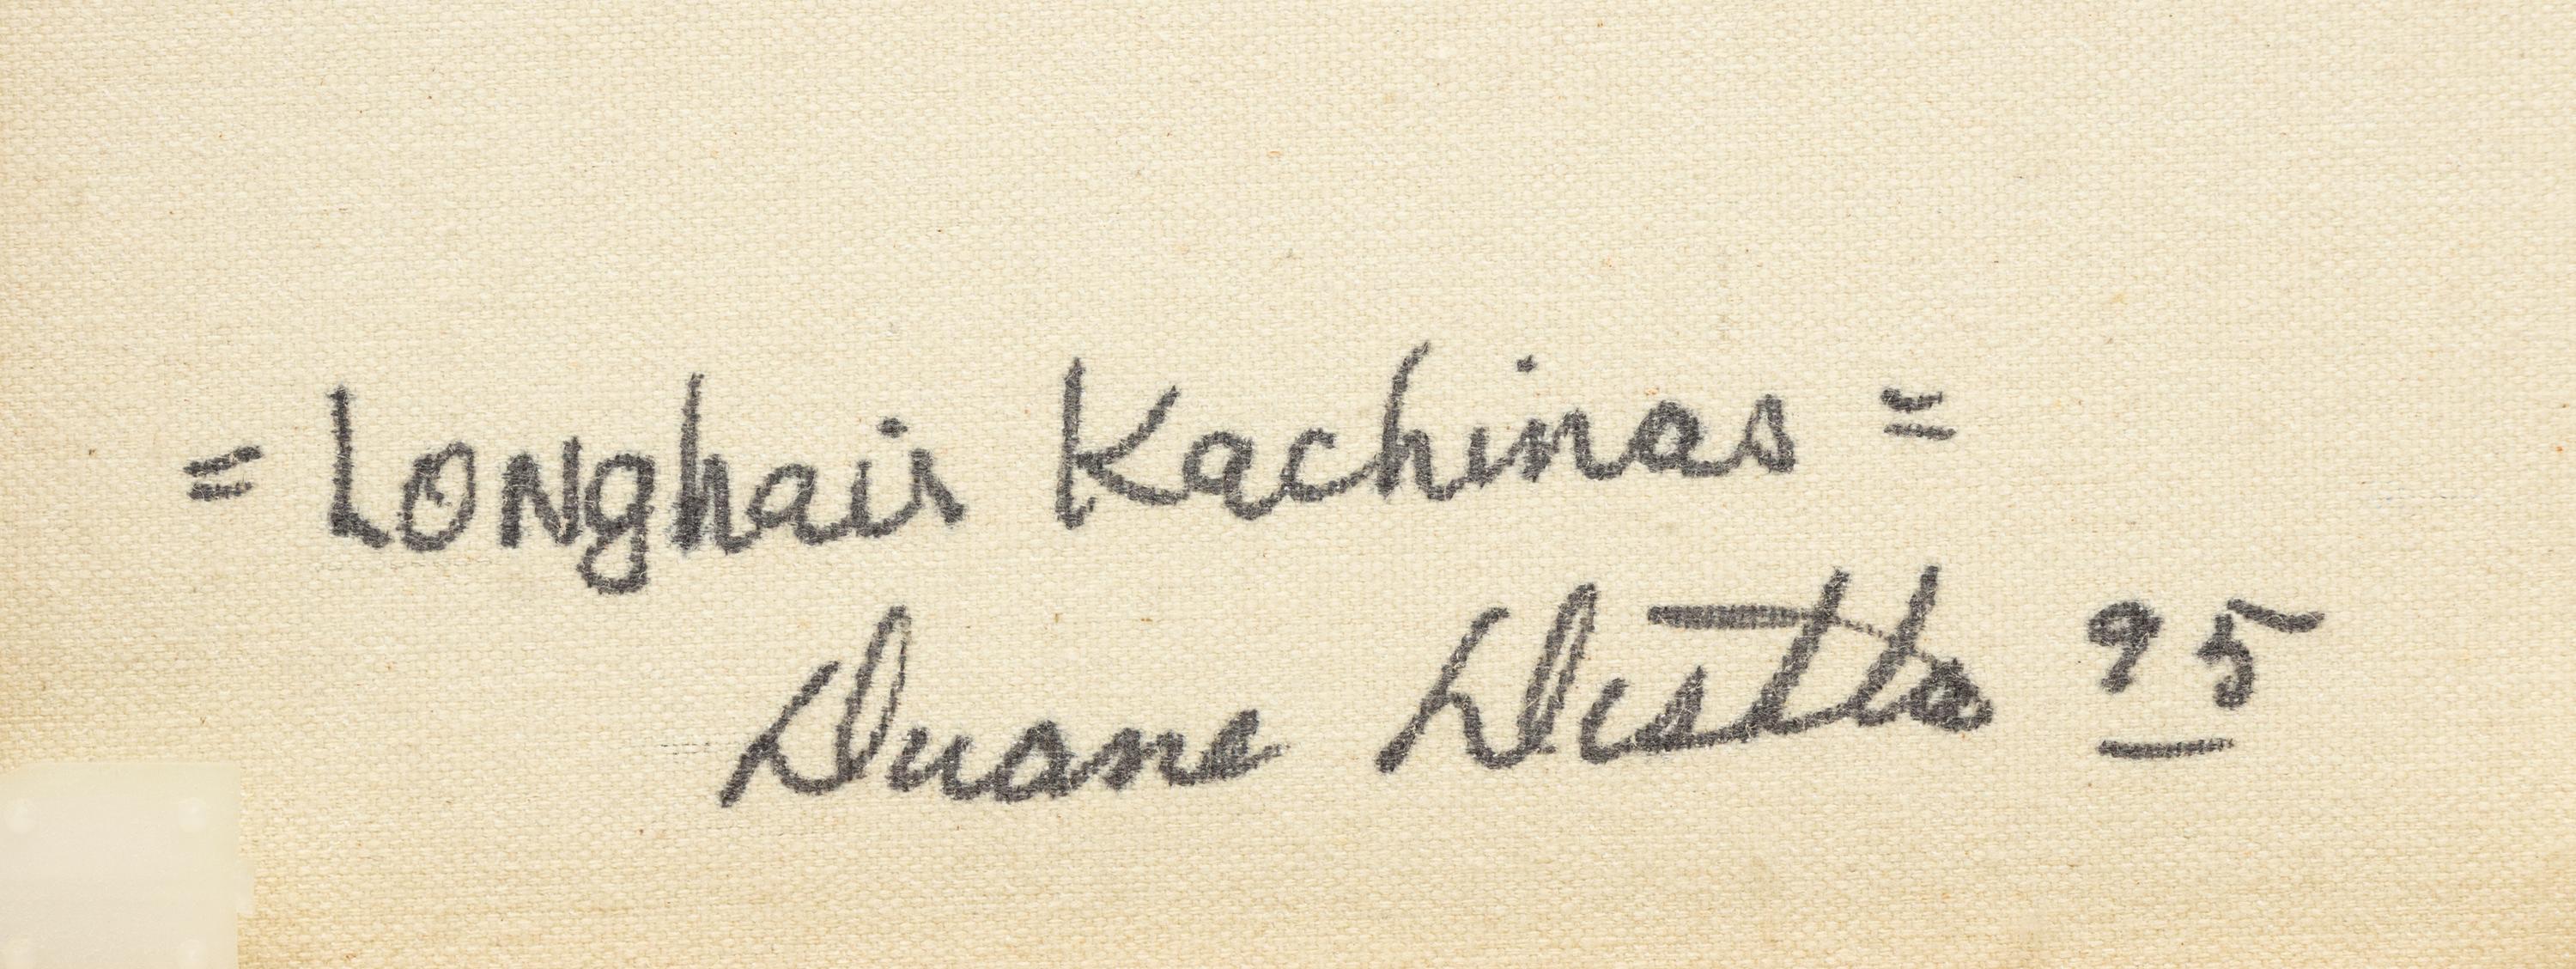 = Longhair Kachinas =
Duane Dishta 95